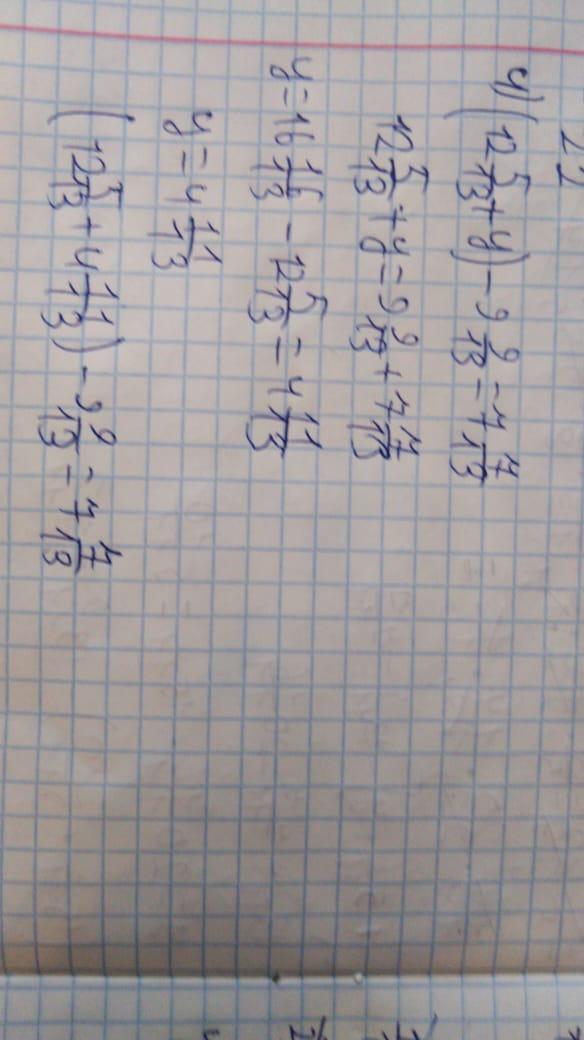 4) (12 5/13 + y) - 9 9/13 = 7 7/13
12 5/13 + y = 9 9/13 + 7 7/13
y = 16 16/13 - 12 5/13 = 4 11/13
y = 4 11/13
(12 5/13 + 4 11/13) - 9 9/13 = 7 7/13